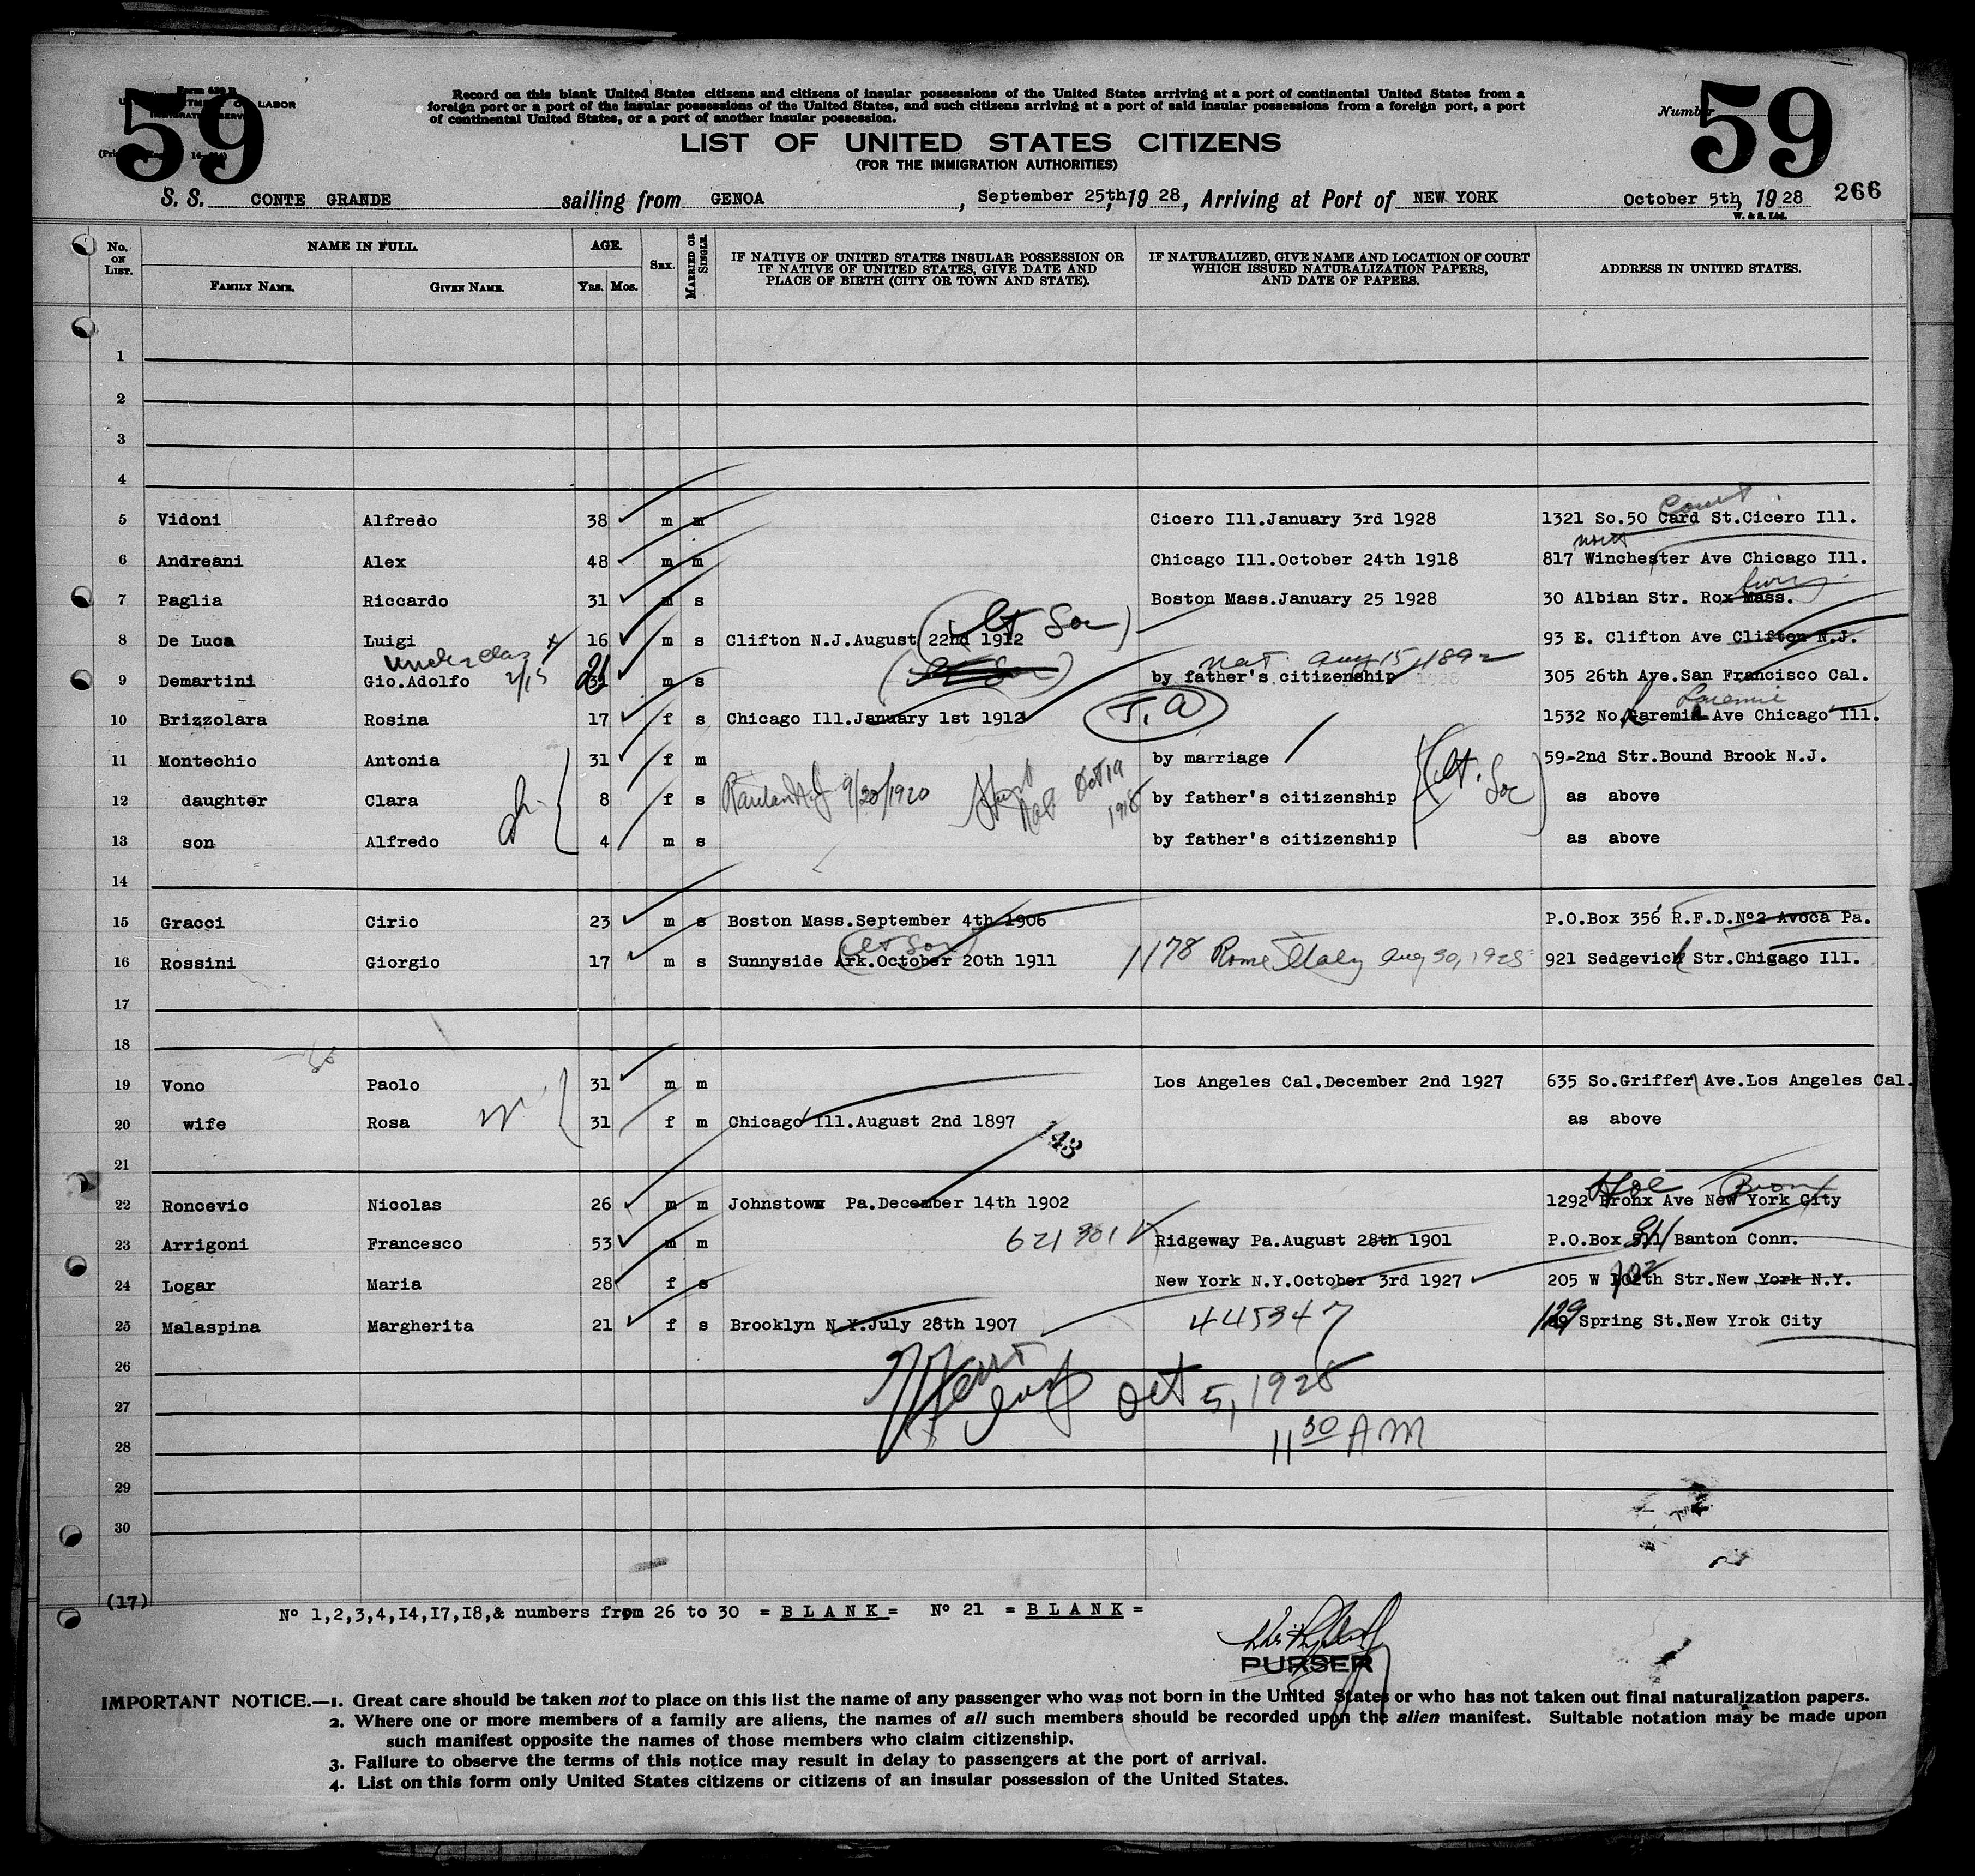 59
Form 630 B
U. S. DEPARTMENT OF LABOR
IMMIGRATION SERVICE
Record on this blank United States citizens and citizens of insular possessions of the United States arriving at a port of continental United States from a
foreign port or a port of the insular possessions of the United States, and such citizens arriving at a port of said insular possessions from a foreign port, a port
of continental United States, or a port of another insular possession.
Number 59
LIST OF UNITED STATES CITIZENS
(FOR THE IMMIGRATION AUTHORITIES)
S. S. CONTE GRANDE sailing from GENOA, September 25th, 19 28, Arriving at Port of NEW YORK October 5th, 19 28 266
W. & S. Ltd.
No. ON LIST. NAME IN FULL. AGE. SEX. MARRIED OR SINGLE. IF NATIVE OF UNITED STATES INSULAR POSSESSION OR IF NATIVE OF UNITED STATES, GIVE DATE AND PLACE OF BIRTH (CITY OR TOWN AND STATE). IF NATURALIZED, GIVE NAME AND LOCATION OF COURT WHICH ISSUED NATURALIZATION PAPERS, AND DATE OF PAPERS. ADDRESS IN UNITED STATES.
FAMILY NAME. GIVEN NAME. YRS. MOS.
1
2
3
4
Court
5 Vidoni Alfredo 38 m m Cicero Ill.January 3rd 1928 1321 So.50 Card St.Cicero Ill.
North
6 Andreani Alex 48 m m Chicago Ill.October 24th 1918 817 Winchester Ave Chicago Ill.
7 Paglia Riccardo 31 m s Boston Mass.January 25 1928 30 Albian Str. Rox Mass.
8 De Luca Luigi 16 m s Clifton N.J.August 22nd 1912 93 E. Clifton Ave Clifton N.J.
nat. Aug 15, 1892
9 Demartini Gio.Adolfo 2/15 21 m s by father's citizenship 305 26th Ave.San Francisco Cal.
Laremie
10 Brizzolara Rosina 17 f s Chicago Ill.January 1st 1912 T.A 1532 No.Laremie Ave Chicago Ill.
11 Montechio Antonia 31 f m by marriage 59-2nd Str.Bound Brook N.J.
12 daughter Clara 8 f s Raritan N.J 9/20/1920 Oct 19 1918 by father's citizenship as above
13 son Alfredo 4 m s by father's citizenship as above
14
15 Gracci Cirio 23 m s Boston Mass.September 4th 1906 P.O.Box 356 R.F.D.Nº2 Avoca Pa.
16 Rossini Giorgio 17 m s Sunnyside Ark.October 20th 1911 1178 Rome Italy Aug 30, 1928 921 Sedgevick Str.Chicago Ill.
17
18
19 Vono Paolo 31 m m Los Angeles Cal.December 2nd 1927 635 So.Griffer Ave.Los Angeles Cal.
20 wife Rosa 31 f m Chicago Ill.August 2nd 1897 as above
143
21
Hoe Bronx
22 Roncevic Nicolas 26 m m Johnstown Pa.December 14th 1902 1292 Bronx Ave New York City
23 Arrigoni Francesco 53 m m 621301 Ridgeway Pa.August 28th 1901 P.O.Box 311 Banton Conn.
24 Logar Maria 28 f s New York N.Y.October 3rd 1927 205 W 102th Str.New York N.Y.
25 Malaspina Margherita 21 f s Brooklyn N.Y.July 28th 1907 445347 129 Spring St.New Yrok City
26
27 Oct 5, 1928
28 11 30 AM
29
30
(17)
Nº 1,2,3,4,14,17,18,& numbers from 26 to 30 = B L A N K = Nº 21 = B L A N K =
PURSER
IMPORTANT NOTICE.—1. Great care should be taken not to place on this list the name of any passenger who was not born in the United States or who has not taken out final naturalization papers.
2. Where one or more members of a family are aliens, the names of all such members should be recorded upon the alien manifest. Suitable notation may be made upon
such manifest opposite the names of those members who claim citizenship.
3. Failure to observe the terms of this notice may result in delay to passengers at the port of arrival.
4. List on this form only United States citizens or citizens of an insular possession of the United States.